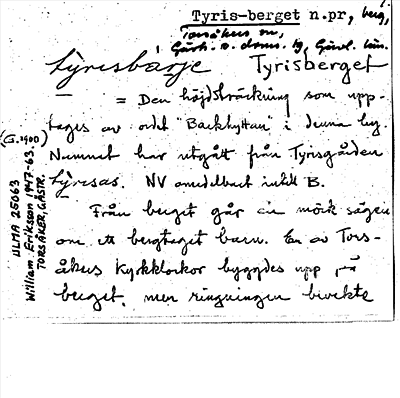 Tyris-berget n.pr, berg,
Torsåkers sn,
Gästr. ö. doms. tg, Gävl. län.
tỳrisbärje Tyrisberget
= Den höjdsträckning som upp-
tages av ordet "Backhyttan" i denna by.
Namnet har utgått från Tyrisgården
tỳrisas. NV omedelbart intill B.
Från berget går en mörk sägen
om ett bergtaget barn. En av Tors-
åkers kyrkklockor byggdes upp på
berget, men ringningen bevekte
(G. 1900)
ULMA 25063
William Eriksson 1947-63.
TORSÅKER, GÄSTR.